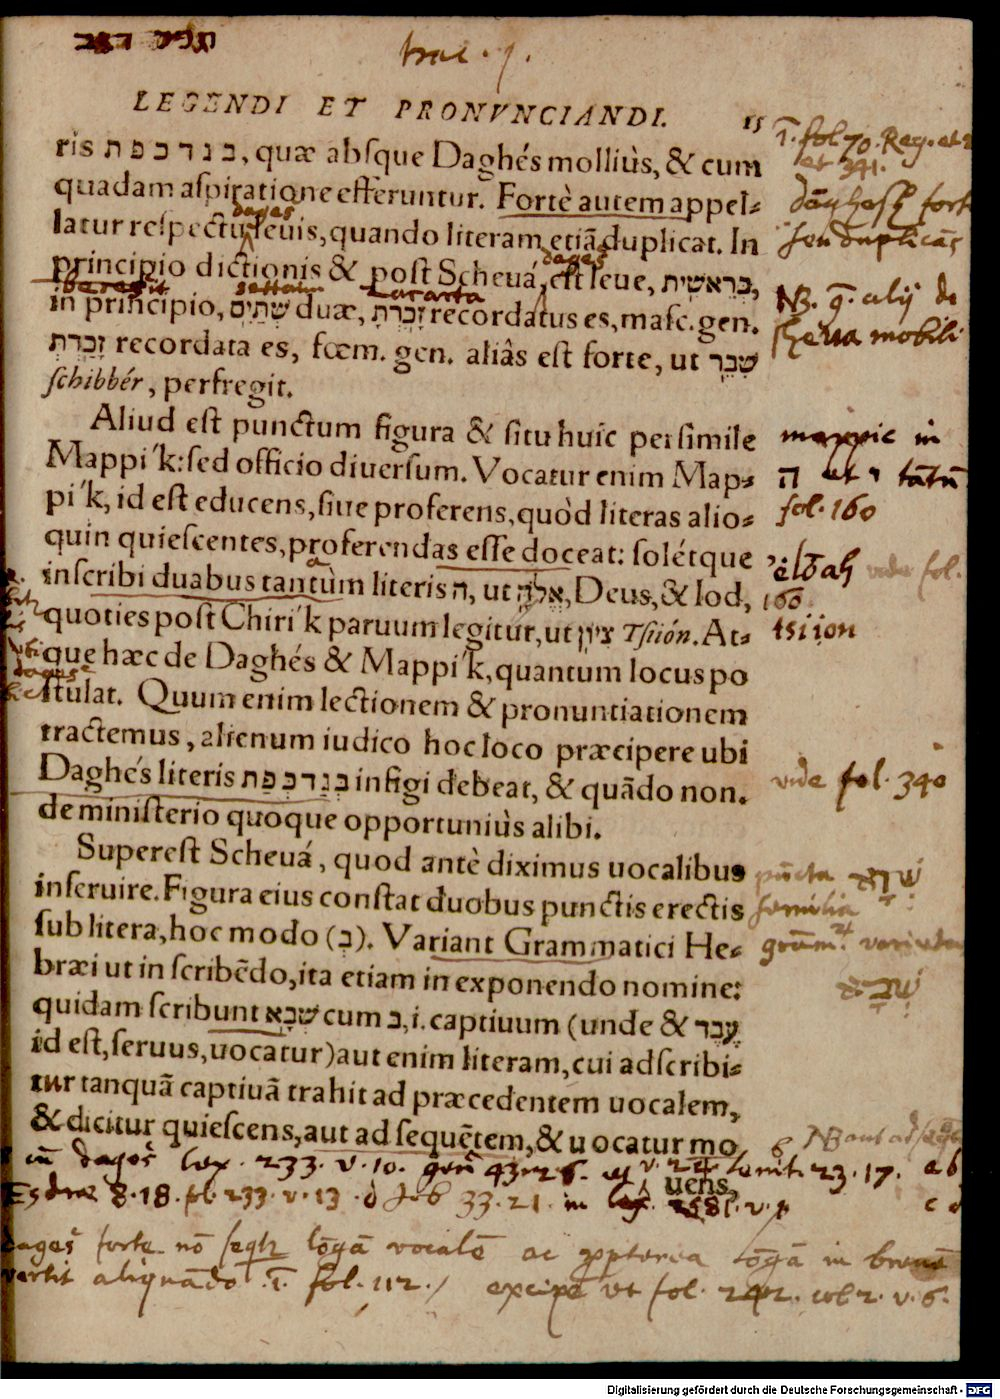 trac. 1.
LEGENDI ET PRONVNCIANDI. 15
ris ב ג ד כ פ ת, quæ absque Daghés molliùs, & cum
quadam aspiratione efferuntur. Fortè autem appel-
dages
latur respectu leuis, quando literam etiã duplicat. In
dages
principio dictionis & post Scheuá, est leue, בְּרֵאשִׁית,
beresit settaim zacarta
in principio, שְׁתַּיִם duæ, זָכַרְתָּ recordatus es, masc. gen.
זָכַרְתְּ recordata es, fœm. gen. aliâs est forte, ut שִׁבֵּר
schibbér, perfregit.
Aliud est punctum figura & situ huic persimile
Mappi´k: sed officio diuersum. Vocatur enim Map-
pi´k, id est educens, siue proferens, quòd literas alio-
quin quiescentes, proferendas esse doceat: solétque
inscribi duabus tantùm literis ה, ut אֱלֹהַּ, Deus, & Iod,
quoties post Chiri´k paruum legitur, ut צִיּוֹן Tsiión. At-
que hæc de Daghés & Mappi´k, quantum locus po
stulat. Quum enim lectionem & pronuntiationem
tractemus, alienum iudico hoc loco præcipere ubi
Daghés literis בּ גּ דּ כּ פּ תּ infigi debeat, & quãdo non.
de ministerio quoque opportuniùs alibi.
Superest Scheuá, quod antè diximus uocalibus
inseruire. Figura eius constat duobus punctis erectis
sub litera, hoc modo (בְ). Variant Grammatici He-
bræi ut in scribẽdo, ita etiam in exponendo nomine:
quidam scribunt שְׁבָא cum ב, i. captiuum (unde & עֶבֶר
id est, seruus, uocatur) aut enim literam, cui adscribi-
tur tanquã captiuã trahit ad præcedentem uocalem,
& dicitur quiescens, aut ad sequẽtem, & uocatur mo
uens,
fol. 70. Reg. et
et 341.
daghesh forte
seu duplicãs
NB. alij de
sheua mobili
mappic in
ה et י tãtũ
fol. 160
elõah vide fol.
160
tsiion
vide fol. 340
pũcta
familia
NB aut ad
dages lex. 233. v. 10. 23. 17.
Esdræ 8. 18. fol. 233. v. 13. Job 33. 21. in lex.
dages forte nõ lõgã vocalẽ ac propterea lõgã in breuẽ
vertit aliquãdo fol. 112. / excipe ut fol. 242. col 2. v. 6.
Digitalisierung gefördert durch die Deutsche Forschungsgemeinschaft - DFG